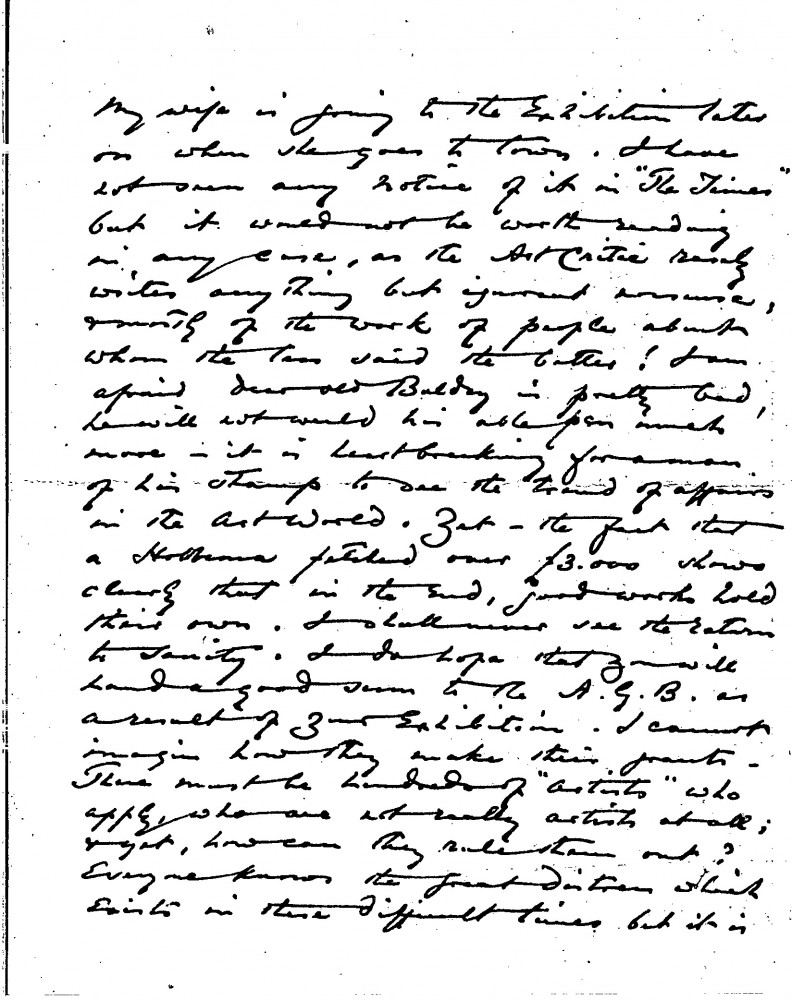 My wife is going to the Exhibition later
on when she goes to town. I have
not seen any notice of it in "The Times"
but it would not be worth reading
in any case, as the Art Critic rarely
writes anything but ignorant nonsense,
& mostly of the work of people about
whom the less said the better! I am
afraid dear old Baldry is pretty bad,
he will not wield his able pen much
more – it is heartbreaking for a man
of his stamp to see the trend of affairs
in the Art World. Yet – the fact that
a Hobbema fetched over £3.000 shows
clearly that in the end, good works hold
their own. I shall never see the return
to Sanity. I do hope that you will
hand a good sum to the A.G.B. as
a result of your Exhibition. I cannot
imagine how they make their grants –
There must be hundreds of "artists" who
apply, who are not really artists at all;
& yet, how can they rule them out?
Everyone knows the great distress which
exists in these difficult times but it is